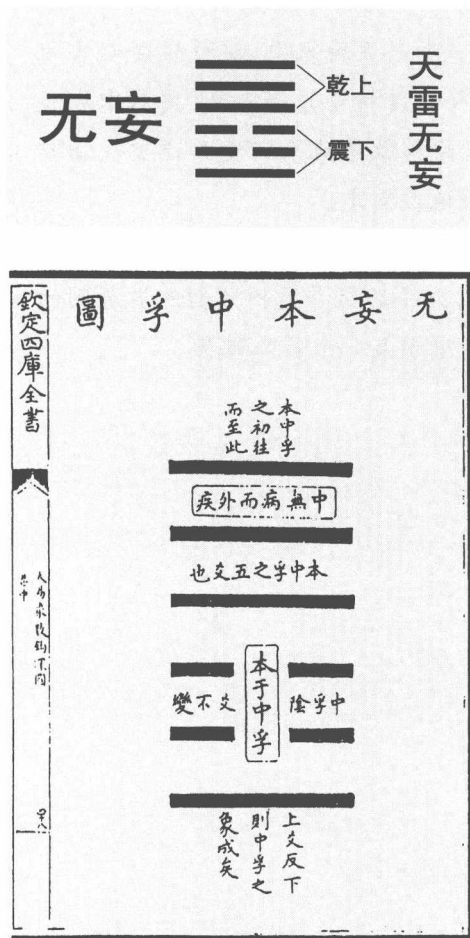 无妄
乾上
震下
天雷无妄
欽定四庫全書
无妄本中孚圖
本中孚
之初往
而至此
中無病而外疾
本中孚之五爻也
本于中孚
中孚陰
爻不變
上爻反下
則中孚之
象成矣